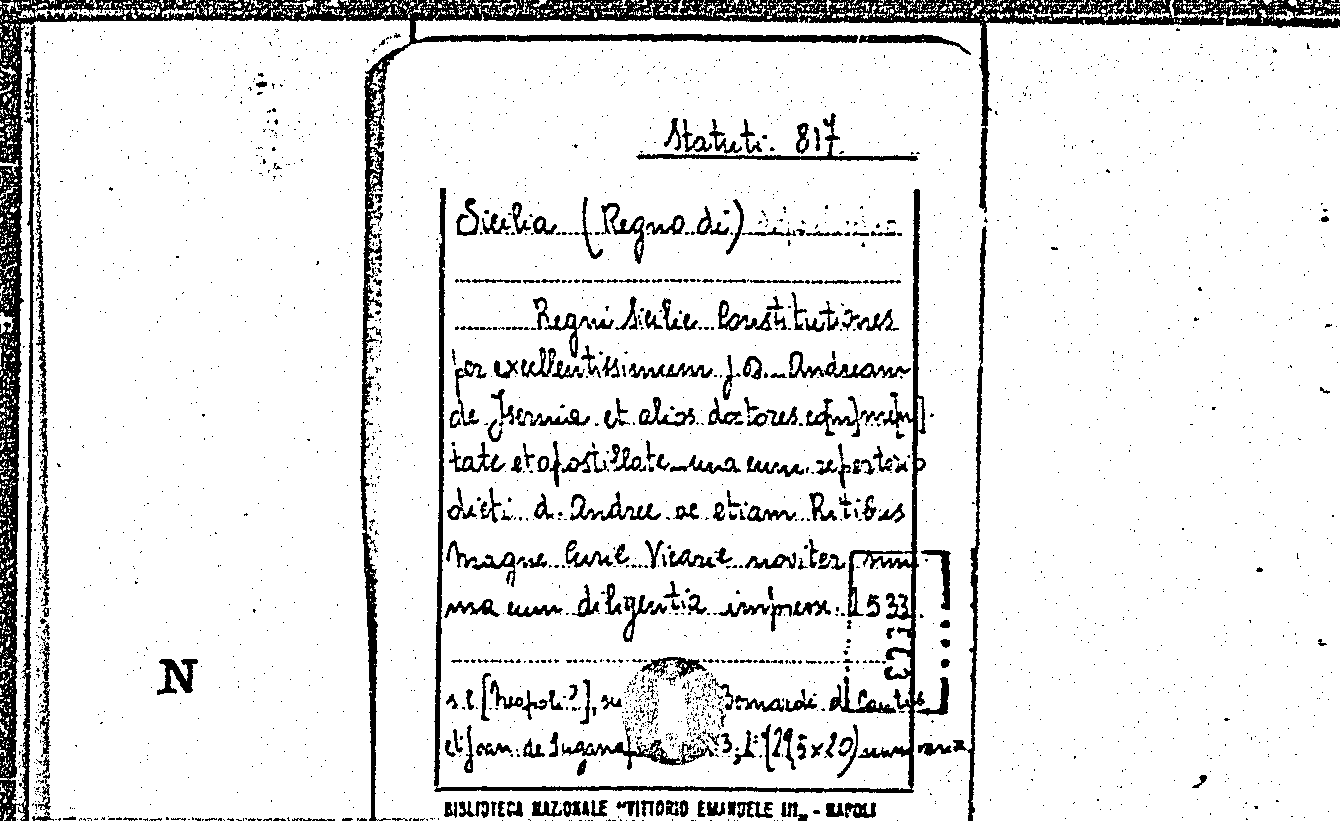 Statuti. 817
Sicilia (Regno di)
Regni Sicilie Constitutiones
per excellentissimum J. D. Andream
de Jsernia et alios doctores co[m]me[n]
tate et apostillate una cum repertorio
dicti d. Andree ac etiam Ritibus
Magne Curie Vicarie noviter sum
ma cum diligentia impresse. 1533
s.l. [Neapoli?], su Bernardi de
et Joan. de 3, (29,5x20)
BIBLIOTECA NAZIONALE "VITTORIO EMANUELE III„ - NAPOLI
N